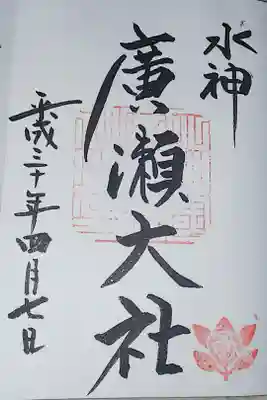 水神
廣瀬大社
平成三十年四月七日